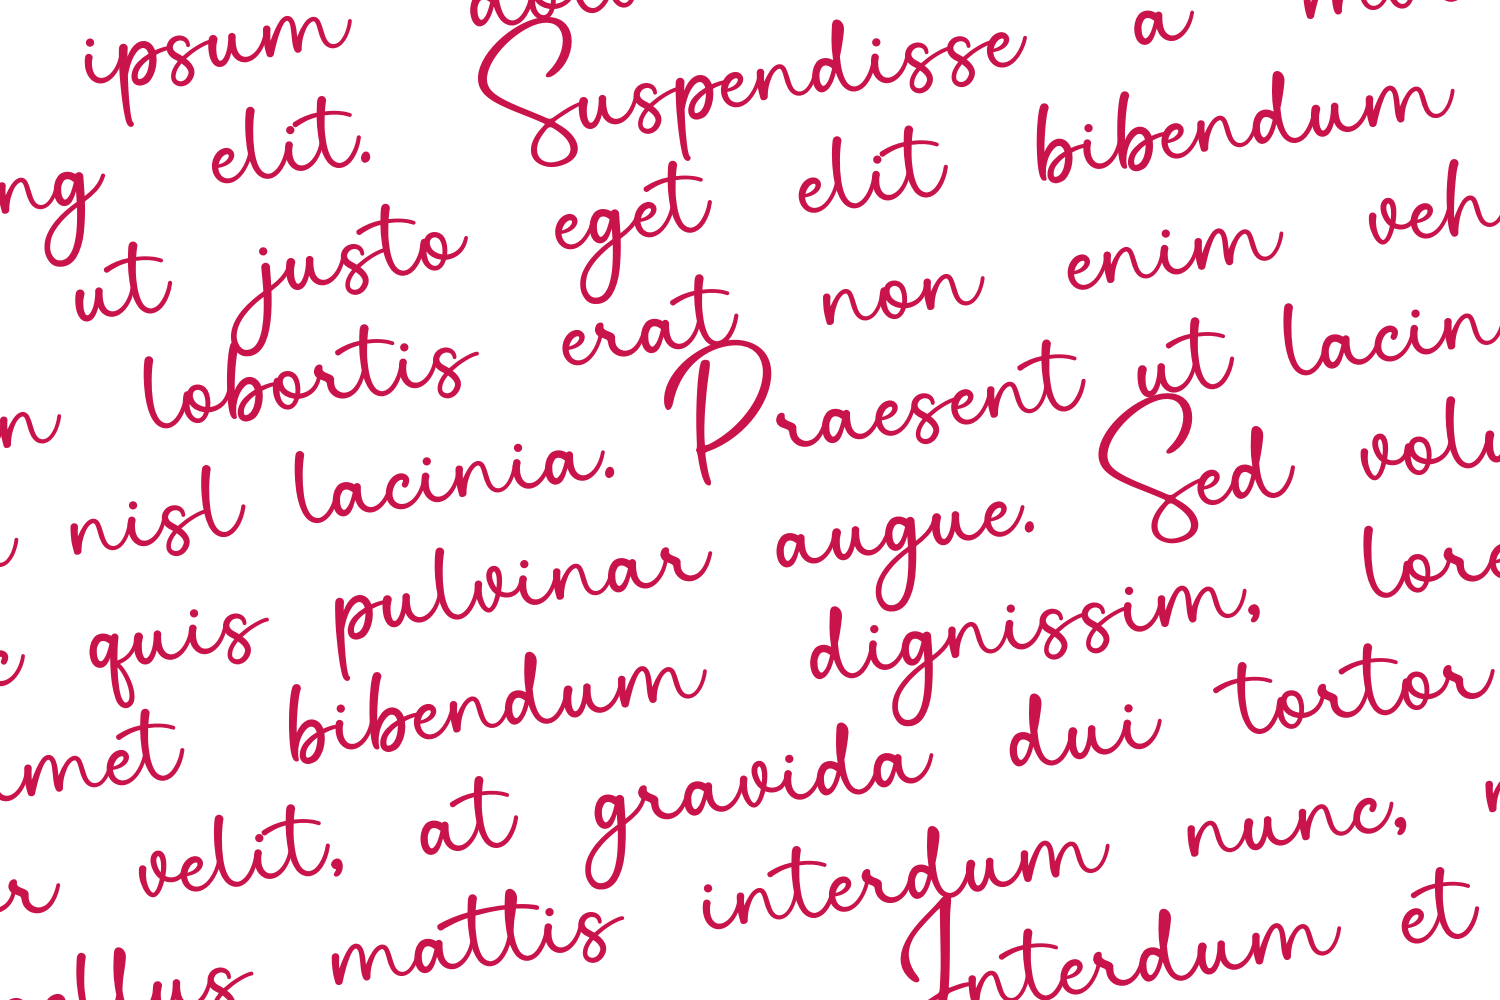 ipsum
ng elit. Suspendisse a
ut justo eget elit bibendum
n lobortis erat non enim veh
nisl lacinia. Praesent ut lacin
c quis pulvinar augue. Sed volu
met bibendum dignissim, lore
r velit, at gravida dui tortor
ellus mattis interdum nunc,
Interdum et